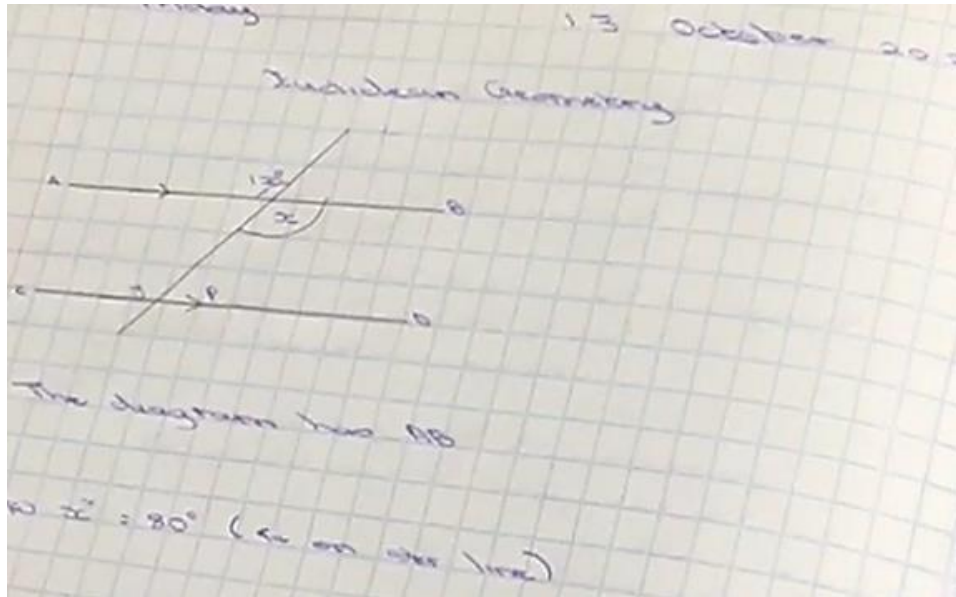 13 October 20
Euclidean Geometry
A
B
x
C
y
P
D
The diagram has AB
x̂ = 80° (<s on str line)